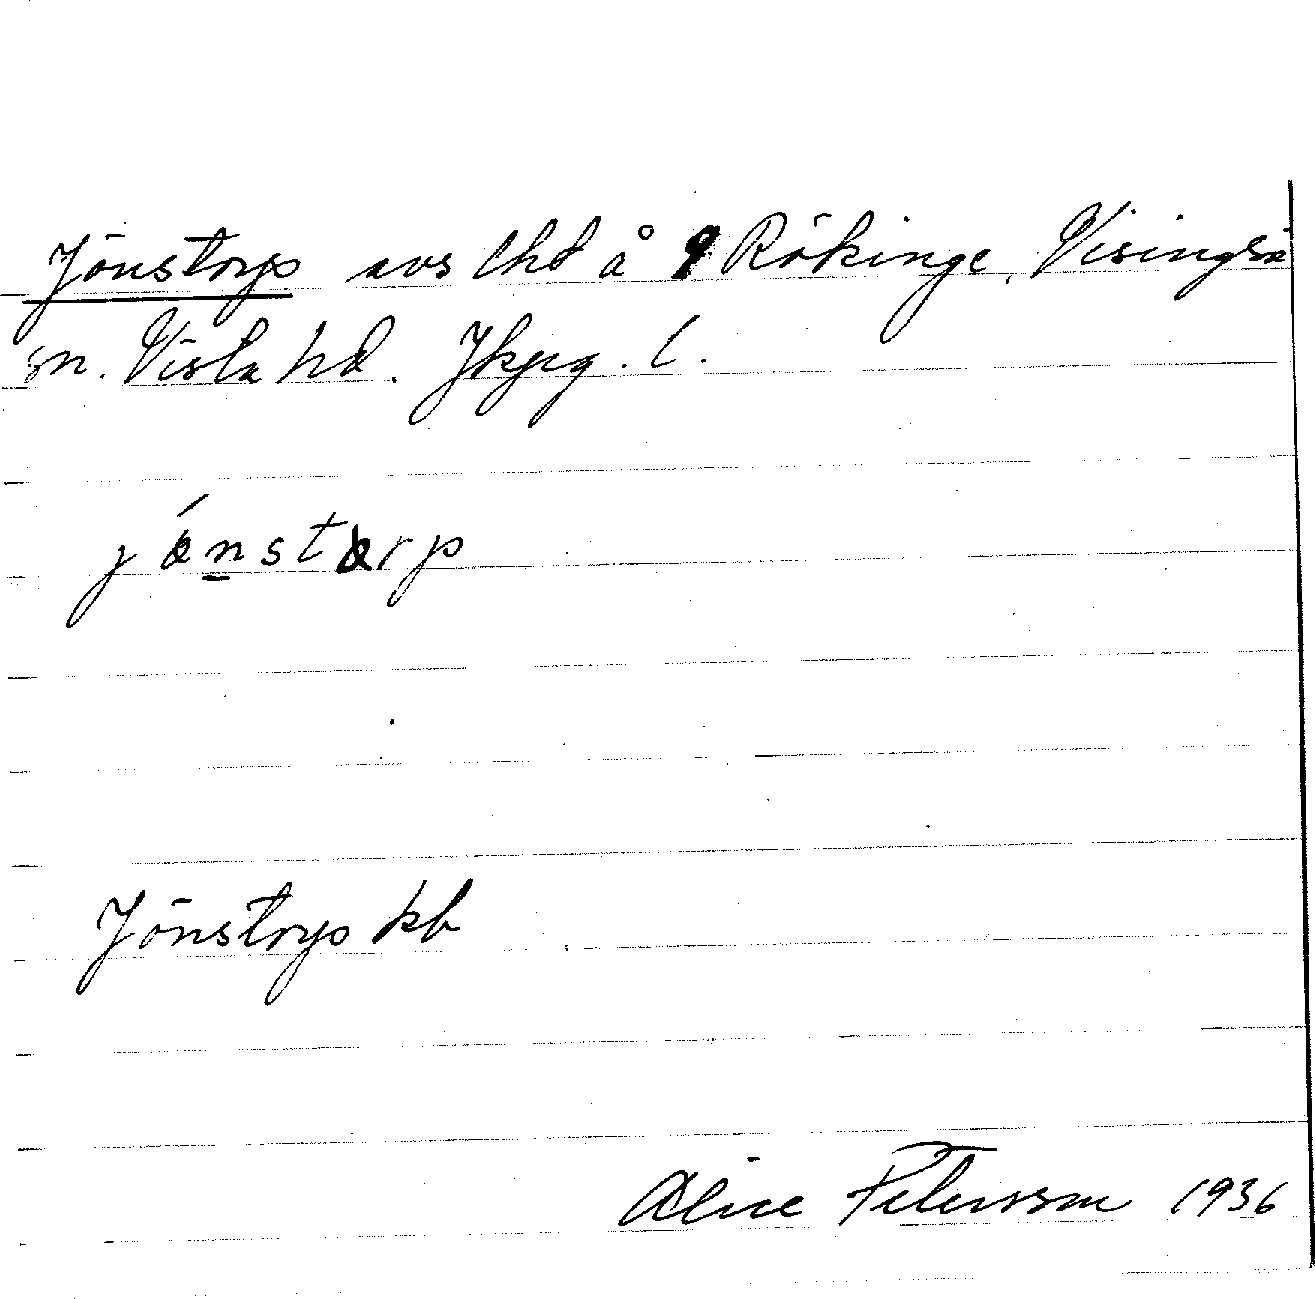 Jönstorp avs lht å 9 Rökinge, Visingsö
sn. Vista hd. Jkpg. l.
jönstorp
Jönstorp kb
Alice Petersson 1936